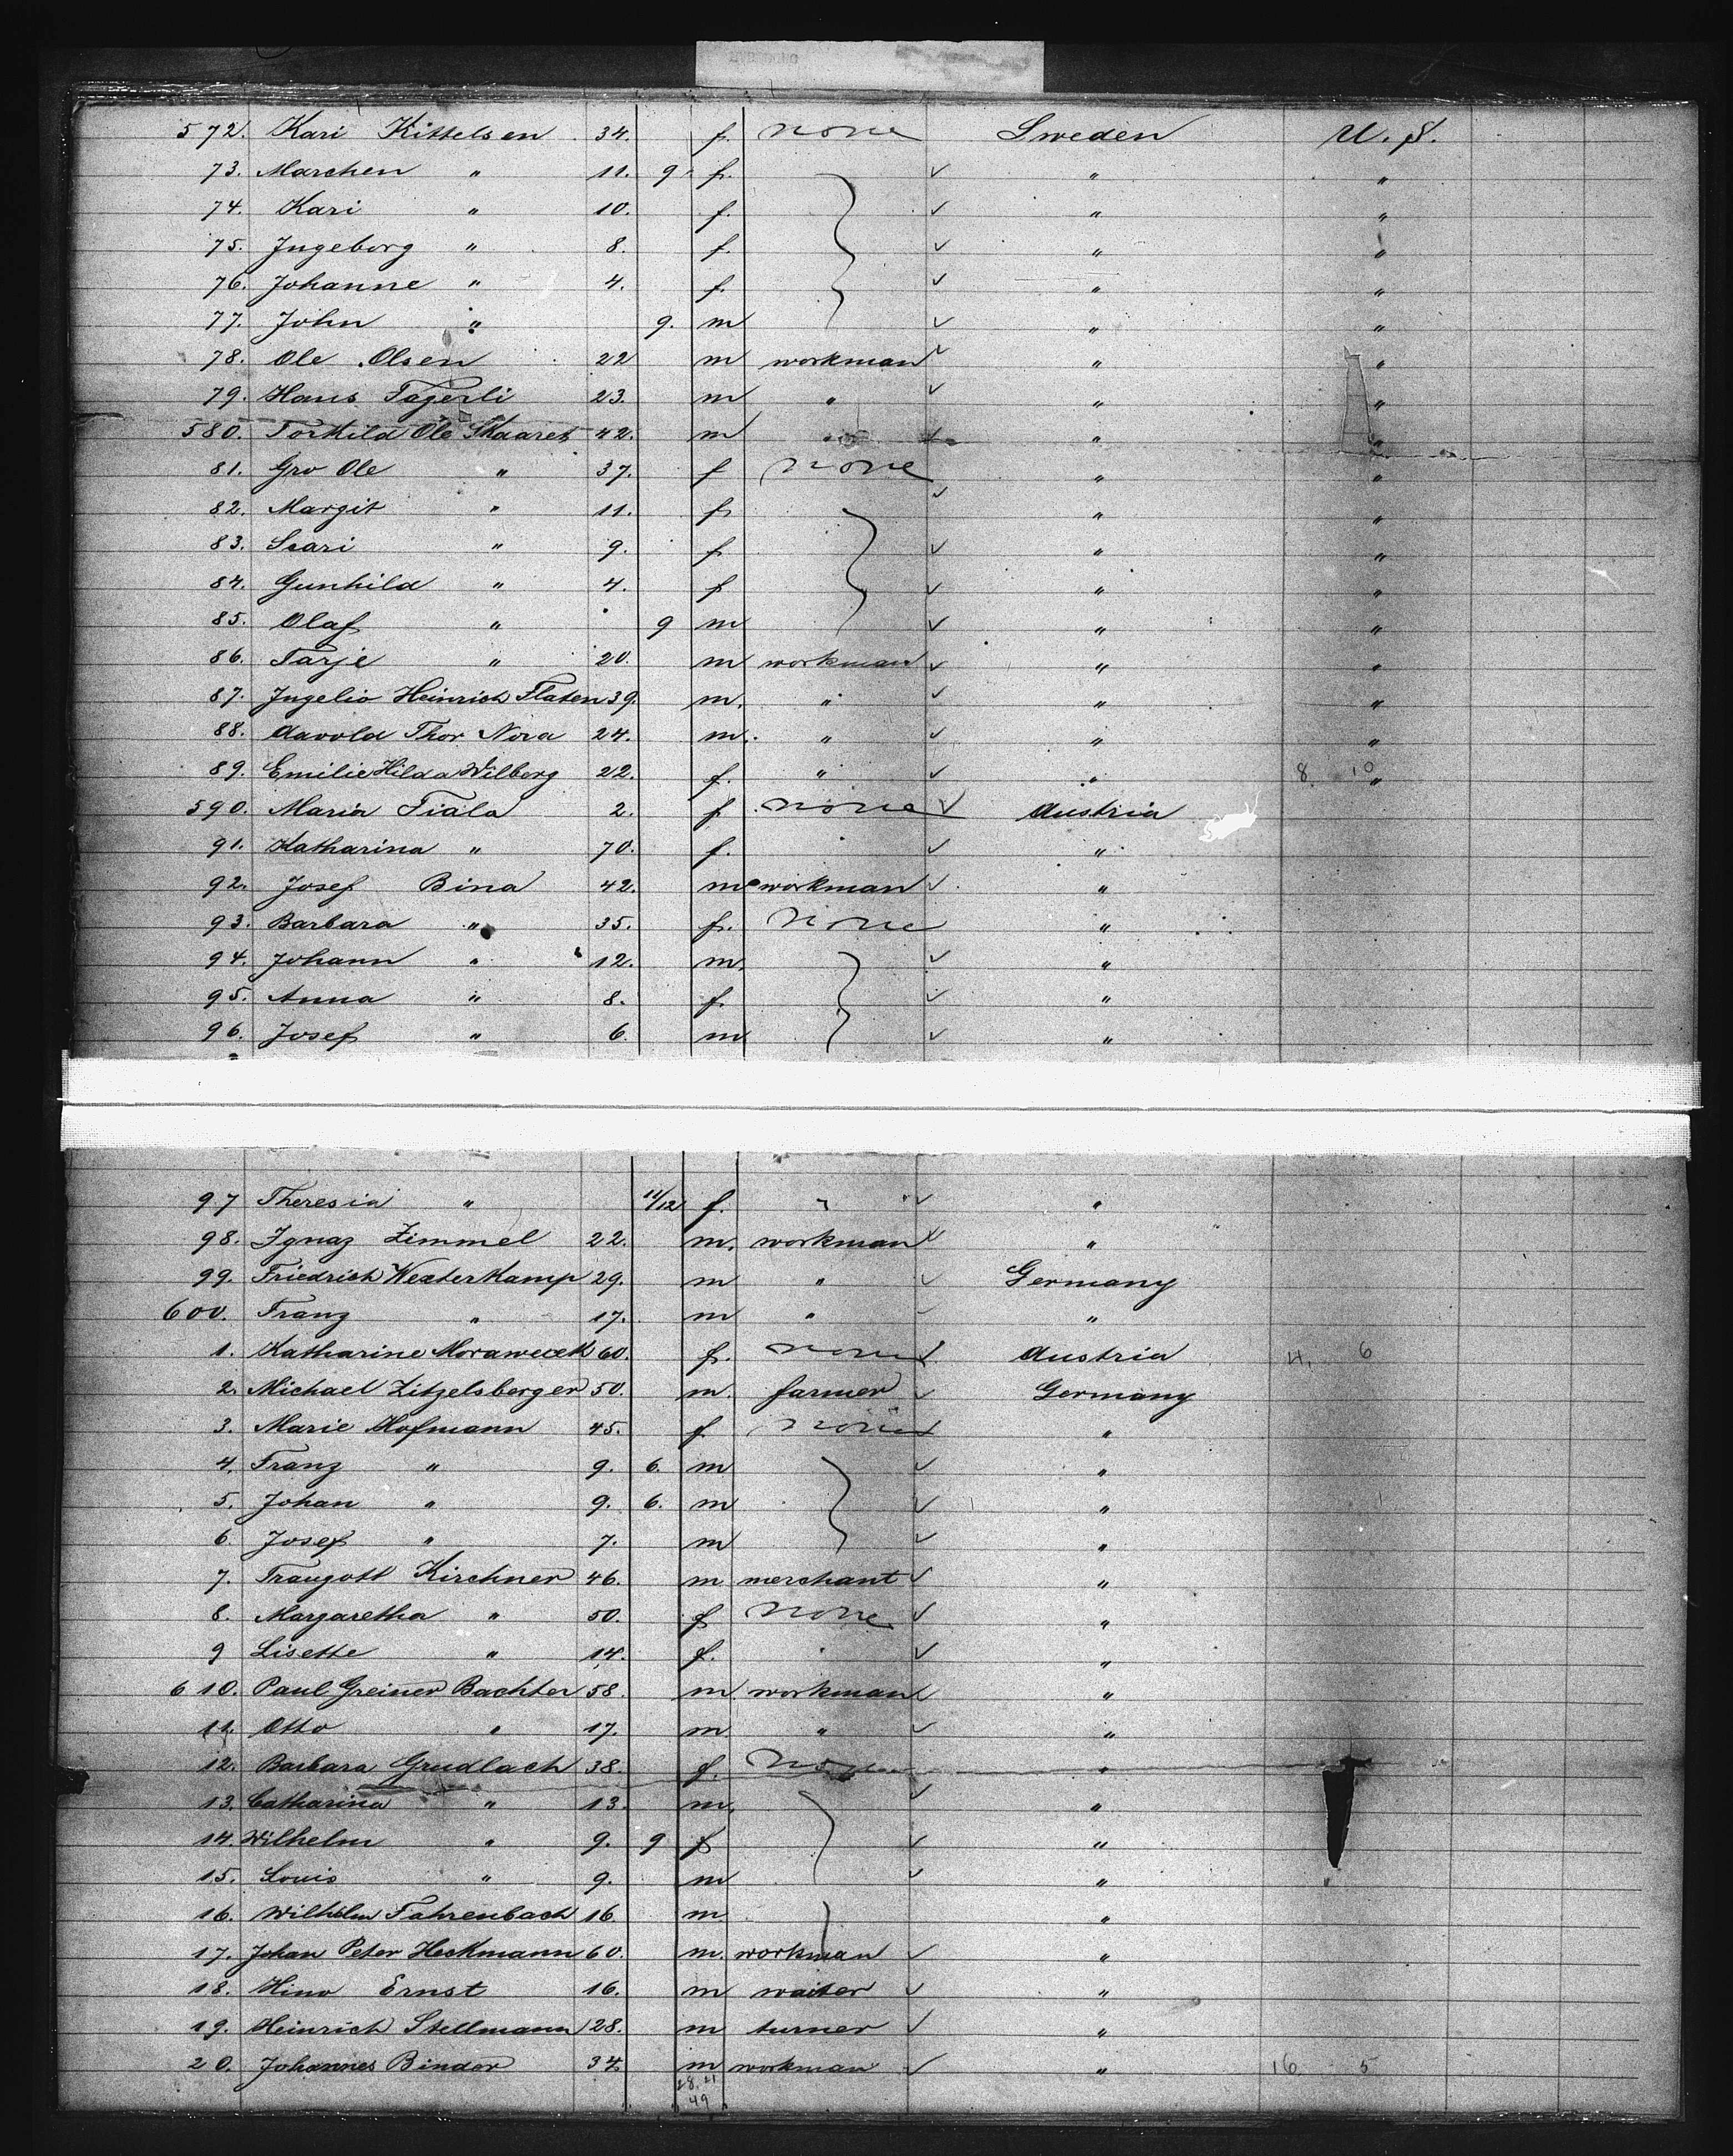 572. Kari Kittelsen 34. f. none Sweden U. S.
73. Marchen " 11. 9 f. " "
74. Kari " 10. f. " "
75. Jngeborg " 8. f. " "
76. Johanne " 4. f. " "
77. John " 9. m " "
78. Ole Olsen 22 m workman " "
79. Hans Fagerli 23. m " " "
580. Torkild Ole Skaaret 42. m " " "
81. Gro Ole " 37. f none " "
82. Margit " 11. f " "
83. Siari " 9. f " "
84. Gunhild " 4. f " "
85. Olaf " 9 m " "
86. Tarje " 20. m workman " "
87. Heinrich Flaten 39. m. " " "
88. Aavold Thor Nora 24. m. " " "
89. Emilie Hilda Wilberg 22. f. " " 8 10 "
590. Maria Fiala 2. f. none Austria
91. Katharina " 70. f. " "
92. Josef Bina 42. m workman "
93. Barbara " 35. f. none "
94. Johann " 12. m. "
95. Anna " 8. f. "
96. Josef " 6. m "
97 Theresia " 11/12 f. " "
98. Jgnaz Zimmel 22. m. workman "
99. Friedrich Wexterkamp 29. m " Germany
600. Franz " 17. m " "
1. Katharine Moraweck 60. f. none Austria 11. 6
2. Michael Zitzelsberger 50. m. farmer Germany
3. Marie Hofmann 45. f. none "
4. Franz " 9. 6. m "
5. Johan " 9. 6. m "
6. Josef " 7. m "
7. Traugott Kirchner 46. m merchant "
8. Margaretha " 50. f none "
9 Lisette " 14. f. "
610. Paul Greiner Bachter 58. m. workman "
11. Otto " 17. m. " "
12. Barbara Grudlach 38. f. none "
13. Catharina " 13. m. "
14. Wilhelm " 9. 9 f "
15. Louis " 9. m "
16. Wilhelm Fahrenbach 16. m. "
17. Johan Peter Heckmann 60. m. workman "
18. Hino Ernst 16. m waiter "
19. Heinrich Stellmann 28. m turner "
20. Johannes Binder 34. m workman " 16 5
28. 21
49